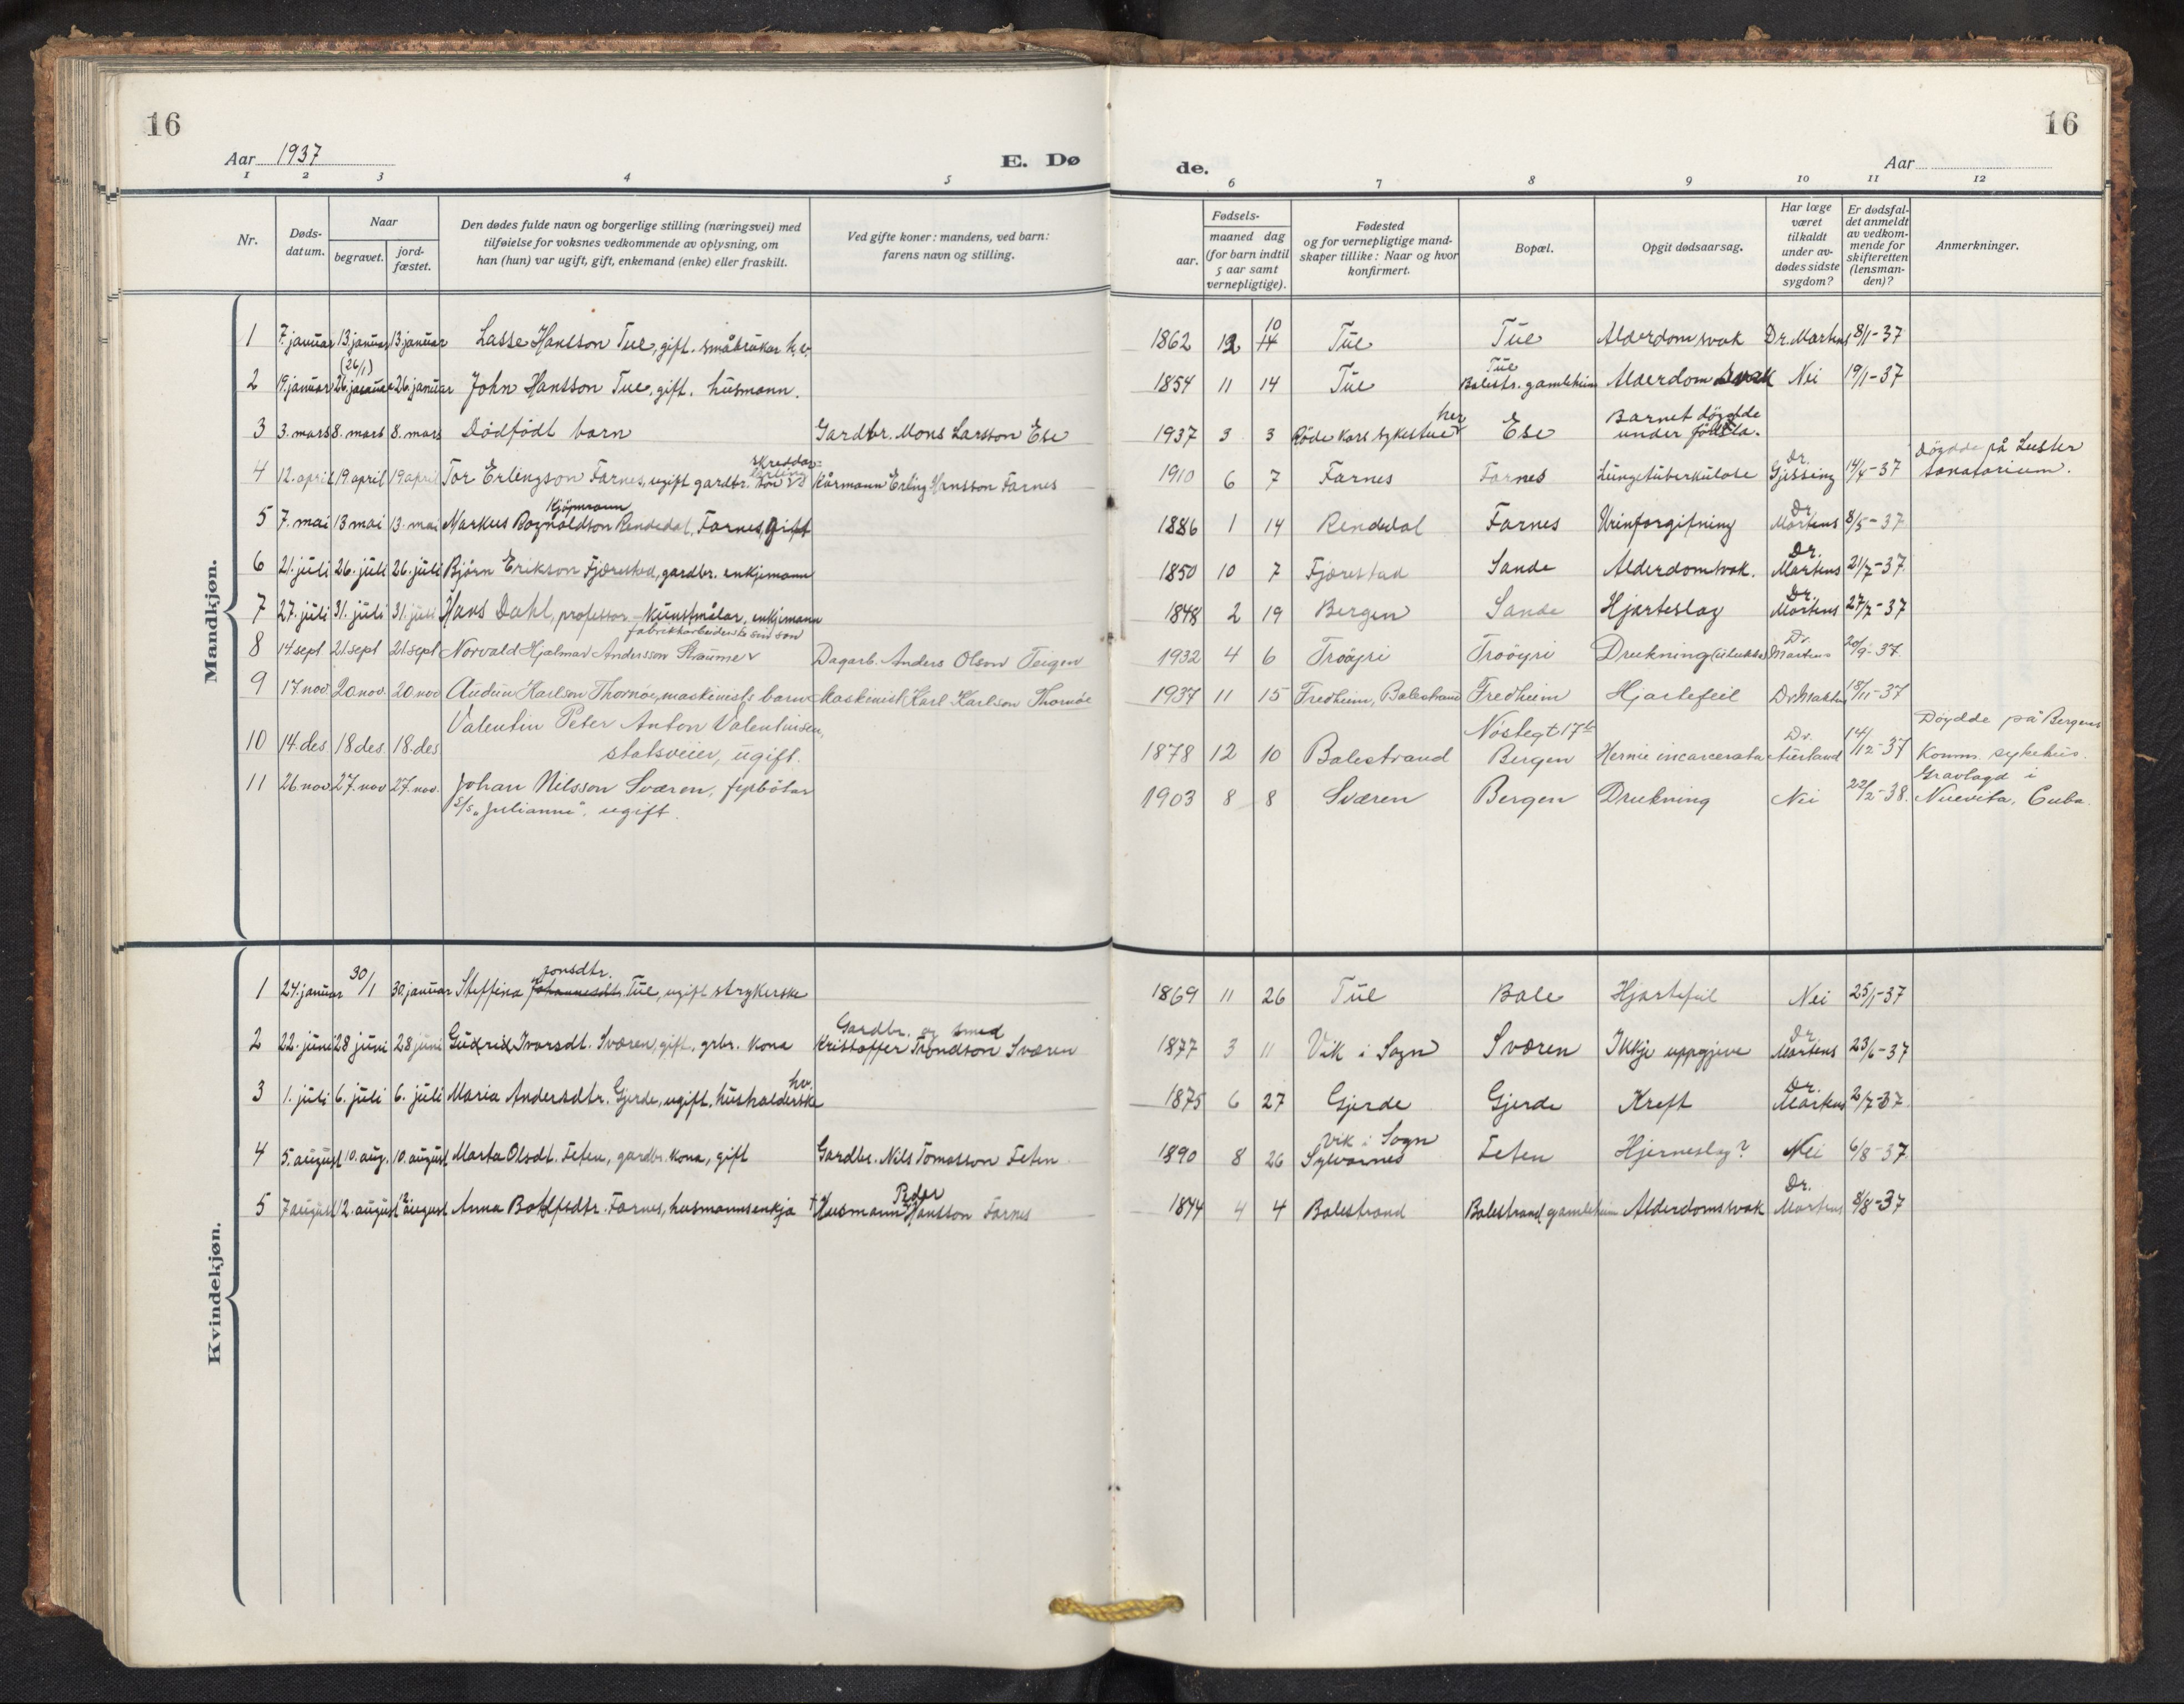 16
16
Aar 1937
E. Dø
de.
Aar
1 2 3 4 5 6 7 8 9 10 11 12
Nr.
Døds-
datum.
Naar
begravet.
jord-
fæstet.
Den dødes fulde navn og borgerlige stilling (næringsvei) med
tilføielse for voksnes vedkommende av oplysning, om
han (hun) var ugift, gift, enkemand (enke) eller fraskilt.
Ved gifte koner: mandens, ved barn:
farens navn og stilling.
Fødsels-
aar.
maaned dag
(for barn indtil
5 aar samt
vernepligtige).
Fødested
og for vernepligtige mand-
skaper tillike: Naar og hvor
konfirmert.
Bopæl.
Opgit dødsaarsag.
Har læge
været
tilkaldt
under av-
dødes sidste
sygdom?
Er dødsfal-
det anmeldt
av vedkom-
mende for
skifteretten
(lensman-
den)?
Anmerkninger.
Mandkjøn.
1 7. januar 13 januar 13 januar Lasse Hansson Tue, gift. småbrukar 1862 12 10 14 Tue Tue Alderdomsvak Dr. Martens 8/1-37
2 19. januar (26/1) 26. januar 26. januar John Hansson Tue, gift. husmann. 1854 11 14 Tue Tue Balestr. gamleheim Alderdomsvak Nei 19/1-37
3 3. mars 8. mars 8. mars Dødfødt barn Gardbr. Mons Larsson Ese 1937 3 3 Røde Kors sykestue her Ese Barnet døydde under fødsla.
4 12. april 19 april 19 april Tor Erlingson Farnes, ugift gardbr. son skreddar- Kårmann Erling Hansson Farnes 1910 6 7 Farnes Farnes Lungetuberkulose Dr. Gjessing 14/4-37 Døydde på Luster sanatorium.
5 7. mai 13 mai 13. mai Kjøpmann Markus Rognaldson Rendedal, Farnes, gift 1886 1 14 Rendedal Farnes Urinforgifning Dr. Martens 8/5-37
6 21. juli 26. juli 26. juli Bjørn Erikson Fjærestad, gardbr. enkjemann 1850 10 7 Fjærestad Sande Alderdomsvak. Dr. Martens 21/7-37.
7 27. juli 31. juli 31. juli Hans Dahl, professor - kunstmålar, enkjemann 1848 2 19 Bergen Sande Hjarteslag Dr. Martens 27/7-37
8 14 sept 21. sept 21. sept Norvald Hjalmar Andersson Straume fabrikkarbeidar sin son Dagarb. Anders Olson Teigen 1932 4 6 Trøöyri Trøöyri Drukning (ulukke) Dr. Martens 20/9-37.
9 17. nov 20. nov. 20. nov Audun Karlson Thornøe, maskinists barn Maskinist Karl Karlson Thornøe 1937 11 15 Fredheim, Balestrand Fredheim Hjartefeil Dr. Martens 18/11-37
10 14. des 18 des. 18. des Valentin Peter Anton Valentinsen, statsveier, ugift. 1878 12 10 Balestrand Nøstegt 17 b Bergen Hernie incarcerata Dr. Aurland 14/12-37 Døydde på Bergens Komm. sykehus.
11 26. nov 27. nov 27. nov. Johan Nilsson Sværen, fyrbötar S/S "Julianne", ugift. 1903 8 8 Sværen Bergen Drukning Nei 22/2-38. Gravlagd i Nuevita, Cuba.
Kvindekjøn.
1 24. januar 30/1 30. januar Steffina Jonsdtr. Johannesdtr. Tue, ugift strykerske 1869 11 26 Tue Bale Hjartefeil Nei 25/1-37
2 22. juni 28 juni 28 juni Gudrid Ivarsdt. Sværen, gift, grbr. kona Gardbr. og smed Kristoffer Trondson Sværen 1877 3 11 Vik i Sogn Sværen Ikkje uppgjeve Dr. Martens 23/6-37
3 1. juli 6. juli 6. juli Maria Andersdtr. Gjerde, ugift, hushalderske hv. 1875 6 27 Gjerde Gjerde Kreft Dr. Martens 2/7-37.
4 5. august 10. aug. 10. august Marta Olsdt. Feten, gardbr. kona, gift Gardbr. Nils Tomasson Feten 1890 8 26 Vik i Sogn Sylvarnes Feten Hjerneslag? Nei 6/8-37.
5 7 august 12. august 12 august Anna Botolfsdtr. Farnes, husmannsenkja † Husmann Peder Hansson Farnes 1844 4 4 Balestrand Balestrand gamleheim Alderdomsvak Dr. Martens 8/8-37